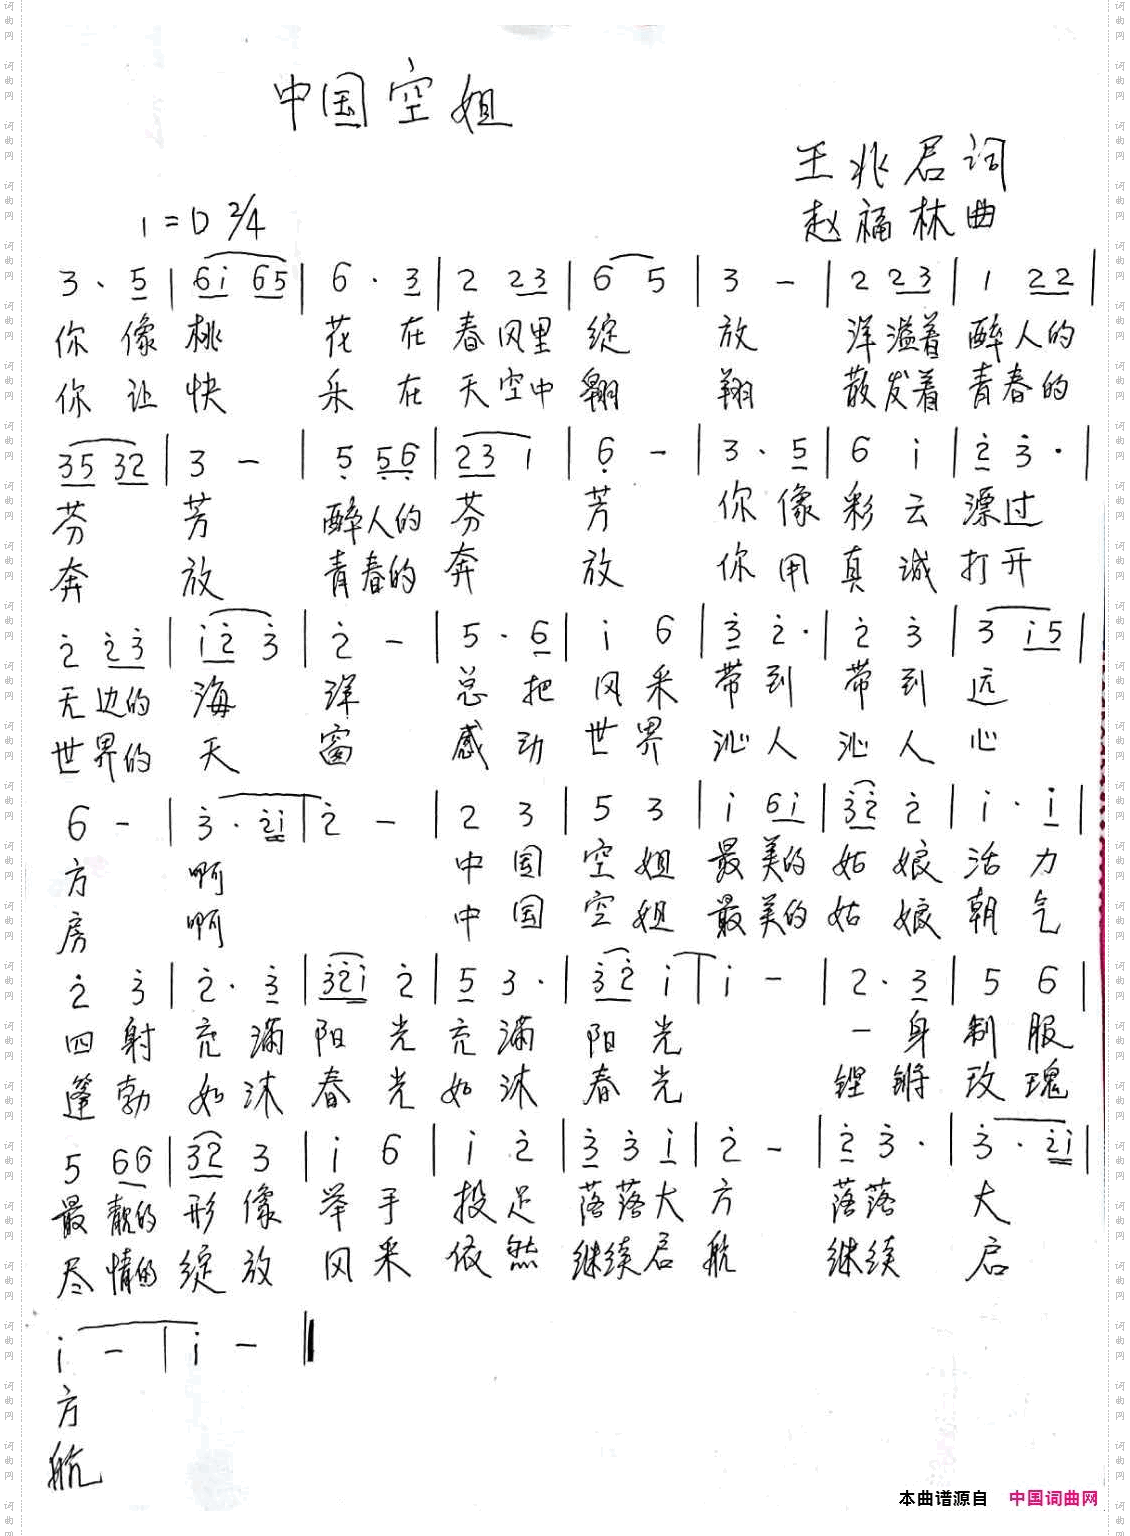 中国空姐
王兆君词
1=D 2/4
赵福林曲
3· 5 | 6i 65 | 6· 3 | 2 23 | 6 5 | 3 - | 2 23 | 1 22 |
你像桃 花在春风里绽 放 洋溢着醉人的
你让快 乐在天空中翱 翔 散发着青春的
35 32 | 3 - | 5 56 | 23 1 | 6 - | 3· 5 | 6 i | 2 3· |
芬 芳 醉人的芬 芳 你像彩云漂过
奔 放 青春的奔 放 你用真诚打开
2 23 | i2 3 | 2 - | 5· 6 | i 6 | 3 2· | 2 3 | 3 i5 |
无边的 海 洋 总把风采带到带到远
世界的 天 窗 感动世界沁人沁人心
6 - | 3· 2i | 2 - | 2 3 | 5 3 | i 6i | 32 2 | i· i |
方 啊 中国空姐最美的姑娘活力
房 啊 中国空姐最美的姑娘朝气
2 3 | 2· 3 | 32i 2 | 5 3· | 32 i | i - | 2· 3 | 5 6 |
四射充满阳光充满阳光 一身制服
蓬勃如沐春光如沐春光 铿锵玫瑰
5 66 | 32 3 | i 6 | i 2 | 3 3 i | 2 - | 2 3· | 3· 2i |
最靓的形像举手投足落落大方 落落 大
尽情的绽放风采依然继续启航 继续 启
i - | i - ‖
方
航
本曲谱源自 中国词曲网